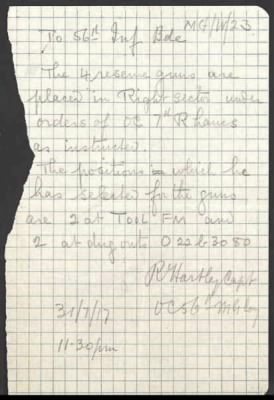 MG/W/23
To 56th Inf Bde
The 4 reserve guns are
placed in Right sector under
orders of OC 7th R Lancs
as instructed.
The positions which he
has selected for the guns
are 2 at TOOL FM and
2 at dug outs O 22 b 30 80
R Hartley Capt
OC 56 M G Coy
31/7/17
11-30 pm